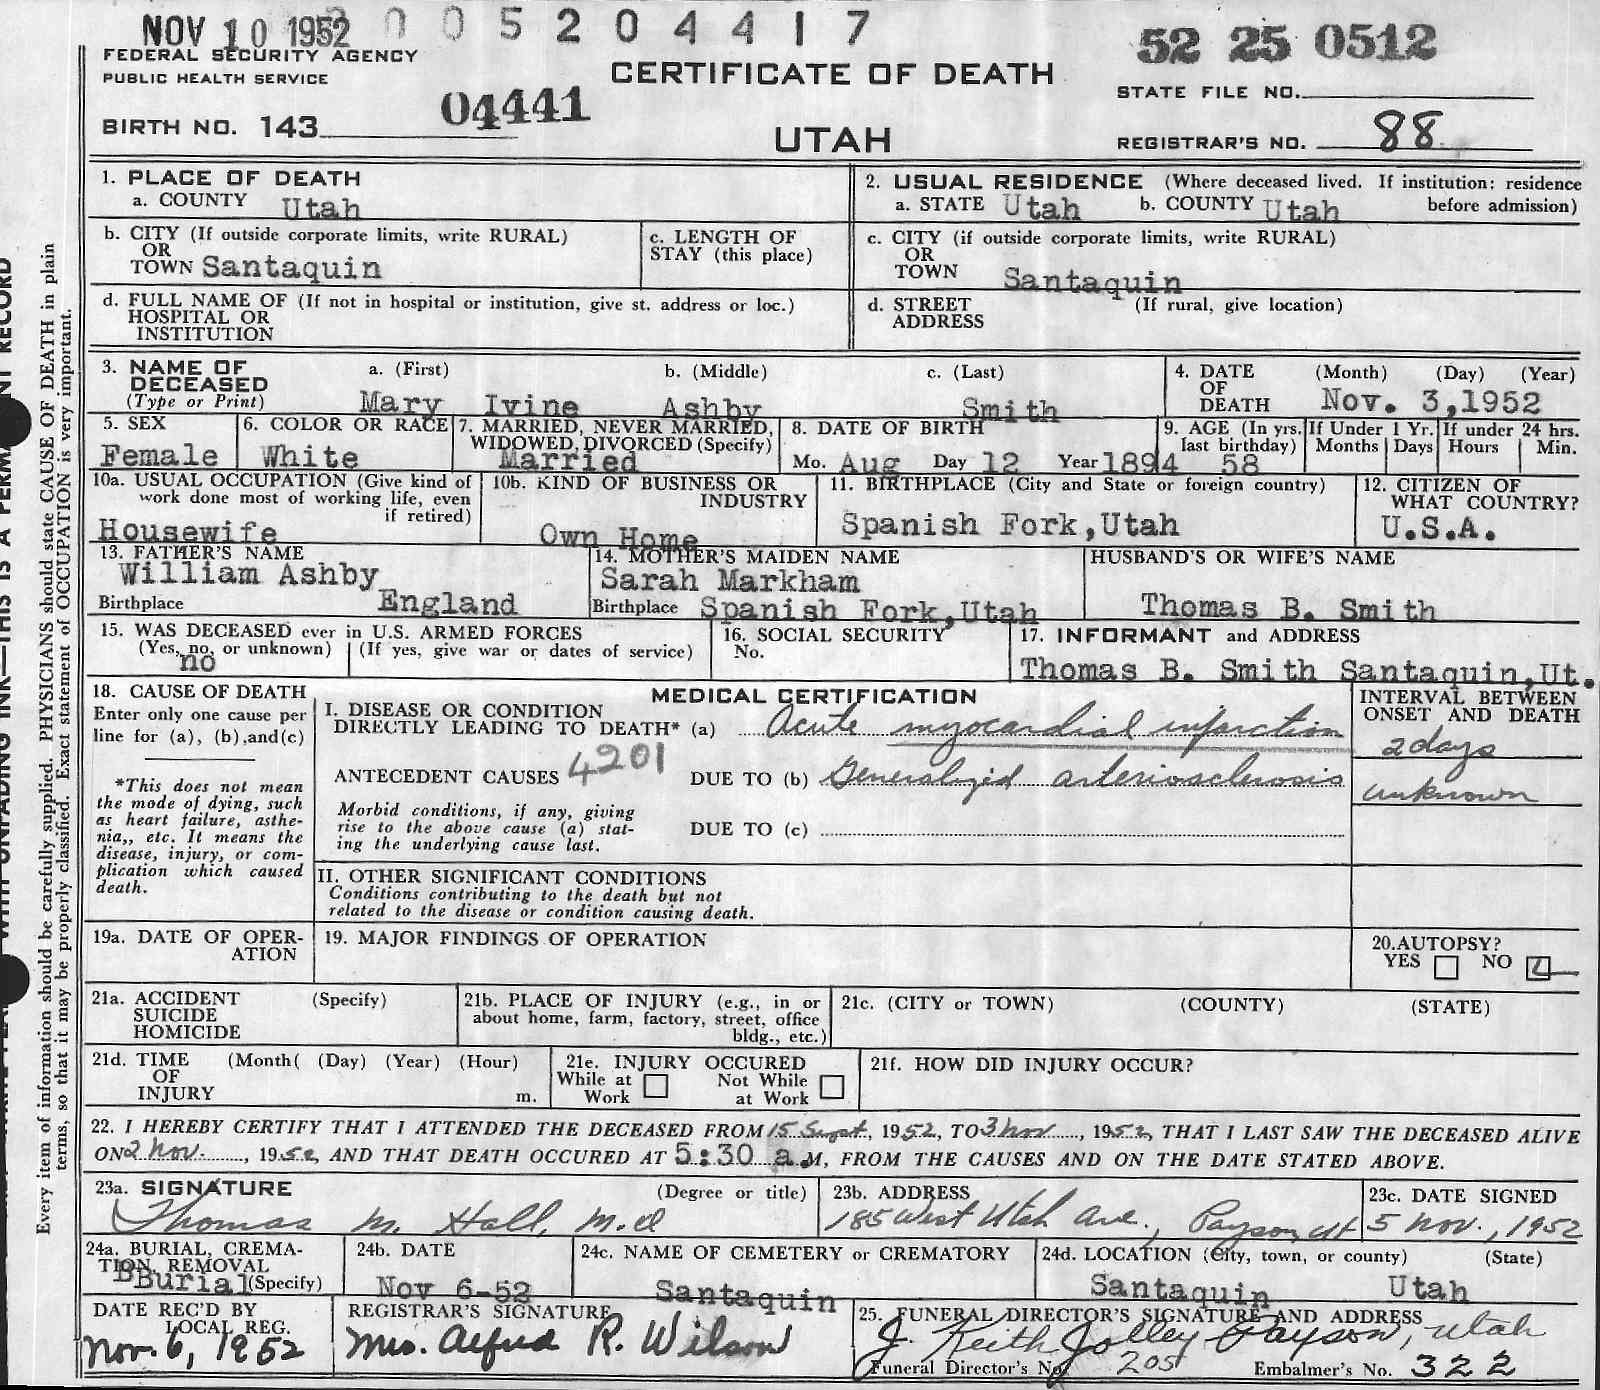 NOV 10 1952 005204417
52 25 0512
FEDERAL SECURITY AGENCY
PUBLIC HEALTH SERVICE
CERTIFICATE OF DEATH
STATE FILE NO.
BIRTH NO. 143 04441
UTAH
REGISTRAR'S NO. 88
1. PLACE OF DEATH
a. COUNTY Utah
2. USUAL RESIDENCE (Where deceased lived. If institution: residence
a. STATE Utah b. COUNTY Utah before admission)
b. CITY (If outside corporate limits, write RURAL)
OR
TOWN Santaquin
c. LENGTH OF
STAY (this place)
c. CITY (if outside corporate limits, write RURAL)
OR
TOWN Santaquin
d. FULL NAME OF (If not in hospital or institution, give st. address or loc.)
HOSPITAL OR
INSTITUTION
d. STREET (If rural, give location)
ADDRESS
3. NAME OF a. (First) b. (Middle) c. (Last)
DECEASED
(Type or Print) Mary Ivine Ashby Smith
4. DATE (Month) (Day) (Year)
OF
DEATH Nov. 3,1952
5. SEX
Female
6. COLOR OR RACE
White
7. MARRIED, NEVER MARRIED,
WIDOWED, DIVORCED (Specify)
Married
8. DATE OF BIRTH
Mo. Aug Day 12 Year 1894
9. AGE (In yrs.
last birthday)
58
If Under 1 Yr.
Months Days
If under 24 hrs.
Hours Min.
10a. USUAL OCCUPATION (Give kind of
work done most of working life, even
if retired)
Housewife
10b. KIND OF BUSINESS OR
INDUSTRY
Own Home
11. BIRTHPLACE (City and State or foreign country)
Spanish Fork,Utah
12. CITIZEN OF
WHAT COUNTRY?
U.S.A.
13. FATHER'S NAME
William Ashby
Birthplace England
14. MOTHER'S MAIDEN NAME
Sarah Markham
Birthplace Spanish Fork,Utah
HUSBAND'S OR WIFE'S NAME
Thomas B. Smith
15. WAS DECEASED ever in U.S. ARMED FORCES
(Yes, no, or unknown) (If yes, give war or dates of service)
no
16. SOCIAL SECURITY
No.
17. INFORMANT and ADDRESS
Thomas B. Smith Santaquin,Ut.
18. CAUSE OF DEATH
Enter only one cause per
line for (a), (b),and(c)
*This does not mean
the mode of dying, such
as heart failure, asthe-
nia,, etc. It means the
disease, injury, or com-
plication which caused
death.
MEDICAL CERTIFICATION
I. DISEASE OR CONDITION
DIRECTLY LEADING TO DEATH* (a) Acute myocardial infarction
ANTECEDENT CAUSES 4201 DUE TO (b) Generalized arteriosclerosis
Morbid conditions, if any, giving
rise to the above cause (a) stat-
ing the underlying cause last.
DUE TO (c)
INTERVAL BETWEEN
ONSET AND DEATH
2 days
unknown
II. OTHER SIGNIFICANT CONDITIONS
Conditions contributing to the death but not
related to the disease or condition causing death.
19a. DATE OF OPER-
ATION
19. MAJOR FINDINGS OF OPERATION
20.AUTOPSY?
YES NO
21a. ACCIDENT (Specify)
SUICIDE
HOMICIDE
21b. PLACE OF INJURY (e.g., in or
about home, farm, factory, street, office
bldg., etc.)
21c. (CITY or TOWN) (COUNTY) (STATE)
21d. TIME (Month( (Day) (Year) (Hour)
OF
INJURY m.
21e. INJURY OCCURED
While at Work Not While at Work
21f. HOW DID INJURY OCCUR?
22. I HEREBY CERTIFY THAT I ATTENDED THE DECEASED FROM 15 Sept, 1952, TO 3 Nov, 1952, THAT I LAST SAW THE DECEASED ALIVE
ON 2 Nov., 1952, AND THAT DEATH OCCURED AT 5:30 a.M, FROM THE CAUSES AND ON THE DATE STATED ABOVE.
23a. SIGNATURE (Degree or title)
Thomas M. Hall, M.d
23b. ADDRESS
185 West Utah Ave., Payson, Ut
23c. DATE SIGNED
5 Nov., 1952
24a. BURIAL, CREMA-
TION, REMOVAL
BBurial (Specify)
24b. DATE
Nov 6-52
24c. NAME OF CEMETERY OR CREMATORY
Santaquin
24d. LOCATION (City, town, or county) (State)
Santaquin Utah
DATE REC'D BY
LOCAL REG.
Nov. 6, 1952
REGISTRAR'S SIGNATURE
Mrs. Alfred R. Wilson
25. FUNERAL DIRECTOR'S SIGNATURE AND ADDRESS
J. Keith Jolley Payson, Utah
Funeral Director's No. 205 Embalmer's No. 322
Every item of information should be carefully supplied. PHYSICIANS should state CAUSE OF DEATH in plain
terms, so that it may be properly classified. Exact statement of OCCUPATION is very important.